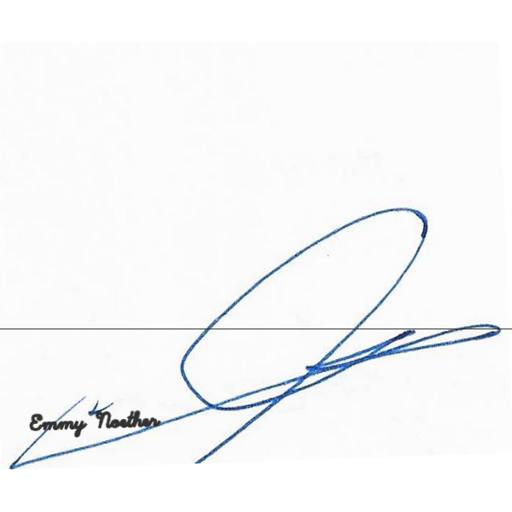 Emmy Noether